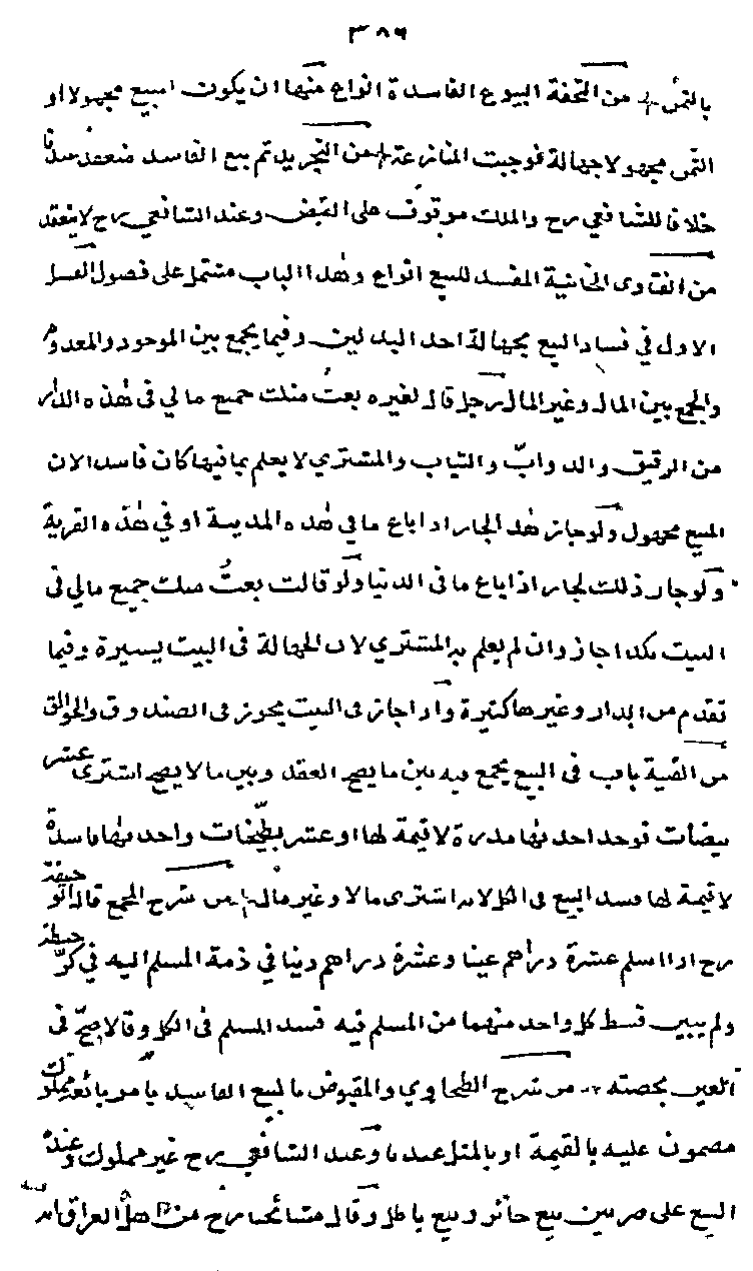 ٣٨٦
بالثمن من التحفة البيوع الفاسدة انواع منها ان يكون المبيع مجهولا او
الثمن مجهولا جهالة فوجبت المنازعة من التجريد ثم بيع الفاسد منعقد عندنا
خلافا للشافعي رح والملك موقوف على القبض وعند الشافعي رح لا ينعقد
من الفتاوى الخانية المفسد للبيع انواع وهذا الباب مشتمل على فصول الفصل
الاول في فساد البيع بجهالة احد البدلين وفيما يجمع بين الموجود والمعدوم
والجمع بين المال وغير المال رجل قال لغيره بعت منك جميع مالي في هذه الدار
من الرقيق والدواب والثياب والمشتري لا يعلم بما فيها كان فاسدا لان
المبيع مجهول ولو جاز هذا لجاز اذا باع ما في هذه المدينة او في هذه القرية
ولو جاز ذلك لجاز اذا باع ما في الدنيا ولو قالت بعت منك جميع مالي في
البيت بكذا جاز وان لم يعلم به المشتري لان الجهالة في البيت يسيرة وفيما
تقدم من الدار وغيرها كثيرة واذا جاز في البيت يجوز في الصندوق والجوالق
من القنية باب في البيع يجمع فيه بين ما يصح العقد وبين ما لا يصح اشترى عشر
بيضات فوجد احديها مدرة لا قيمة لها او عشر بطيخات واحد منها فاسدة
لا قيمة لها فسد البيع في الكل لانه اشترى مالا وغير مال من شرح المجمع قال ابو حنيفة
رح اذا اسلم عشرة دراهم عينا وعشرة دراهم دينا في ذمة المسلم اليه في كر حنطة
ولم يبين قسط كل واحد منهما من المسلم فيه فسد المسلم في الكل وقالا صح في
العين بحصته من شرح الطحاوي والمقبوض بالبيع الفاسد بامر بائعه مملوك
مضمون عليه بالقيمة او بالمثل عندنا وعند الشافعي رح غير مملوك وعنده
البيع على ضربين بيع جائز وبيع باطل وقال مشائخنا رح من اهل العراق انه